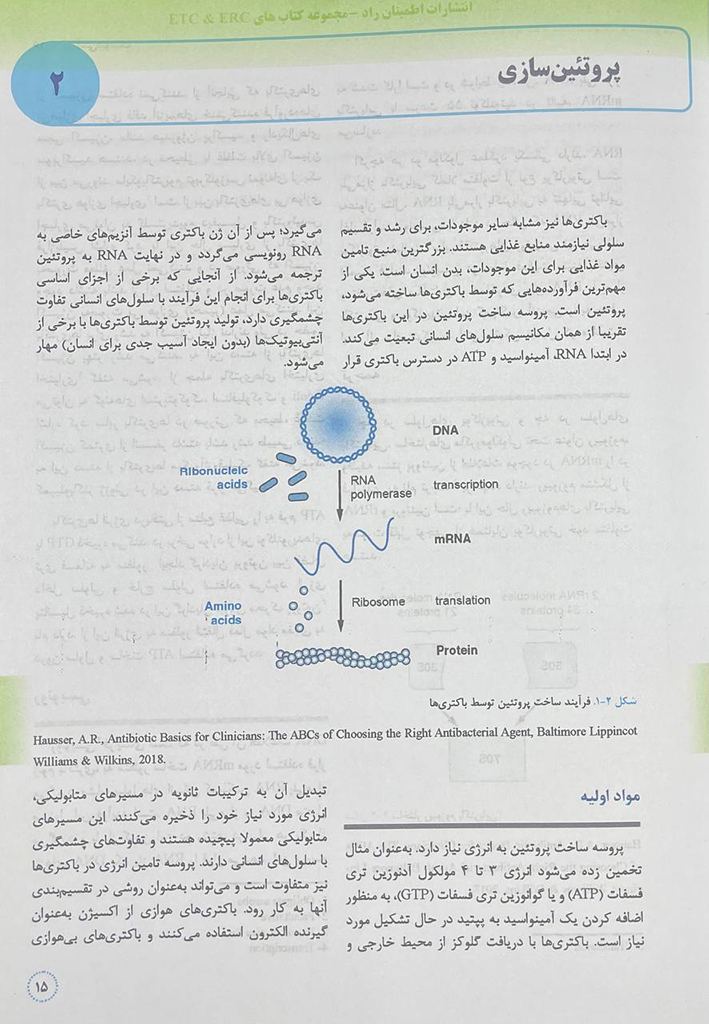 انتشارات اطمینان راد - مجموعه کتاب های ETC & ERC
۲
پروتئین‌سازی
باکتری‌ها نیز مشابه سایر موجودات، برای رشد و تقسیم
سلولی نیازمند منابع غذایی هستند. بزرگترین منبع تامین
مواد غذایی برای این موجودات، بدن انسان است. یکی از
مهم‌ترین فرآورده‌هایی که توسط باکتری‌ها ساخته می‌شود،
پروتئین است. پروسه ساخت پروتئین در این باکتری‌ها
تقریبا از همان مکانیسم سلول‌های انسانی تبعیت می‌کند.
در ابتدا RNA، آمینواسید و ATP در دسترس باکتری قرار
می‌گیرد؛ پس از آن ژن باکتری توسط آنزیم‌های خاصی به
RNA رونویسی می‌گردد و در نهایت RNA به پروتئین
ترجمه می‌شود. از آنجایی که برخی از اجزای اساسی
باکتری‌ها برای انجام این فرآیند با سلول‌های انسانی تفاوت
چشمگیری دارد، تولید پروتئین توسط باکتری‌ها با برخی از
آنتی‌بیوتیک‌ها (بدون ایجاد آسیب جدی برای انسان) مهار
می‌شود.
DNA
Ribonucleic
acids
RNA
polymerase
transcription
mRNA
Amino
acids
Ribosome
translation
Protein
شکل ۲-۱. فرآیند ساخت پروتئین توسط باکتری‌ها
Hausser, A.R., Antibiotic Basics for Clinicians: The ABCs of Choosing the Right Antibacterial Agent, Baltimore Lippincot
Williams & Wilkins, 2018.
مواد اولیه
پروسه ساخت پروتئین به انرژی نیاز دارد. به‌عنوان مثال
تخمین زده می‌شود انرژی ۳ تا ۴ مولکول آدنوزین تری
فسفات (ATP) و یا گوانوزین تری فسفات (GTP)، به منظور
اضافه کردن یک آمینواسید به پپتید در حال تشکیل مورد
نیاز است. باکتری‌ها با دریافت گلوکز از محیط خارجی و
تبدیل آن به ترکیبات ثانویه در مسیرهای متابولیکی،
انرژی مورد نیاز خود را ذخیره می‌کنند. این مسیرهای
متابولیکی معمولا پیچیده هستند و تفاوت‌های چشمگیری
با سلول‌های انسانی دارند. پروسه تامین انرژی در باکتری‌ها
نیز متفاوت است و می‌تواند به‌عنوان روشی در تقسیم‌بندی
آنها به کار رود. باکتری‌های هوازی از اکسیژن به‌عنوان
گیرنده الکترون استفاده می‌کنند و باکتری‌های بی‌هوازی
۱۵